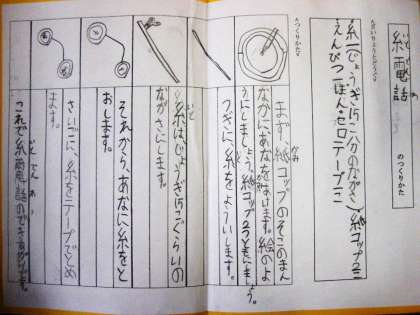 糸電話 のつくりかた
糸(じょうぎ15こ分のながさ)紙コップ2こ
えんぴつ一ぽん・セロテープ一こ
〈つくりかた〉
まず、紙コップのそこのまん
なかに、あなをあけます。絵のよ
うにしましょう。紙コップ2つともにしましょう。
つぎに、糸をよういします。
糸は、じょうぎ15こぐらいの
ながさにします。
それから、あなに糸をと
おします。
さいごに、糸をテープでとめ
ます。
これで糸電話のできあがりです。